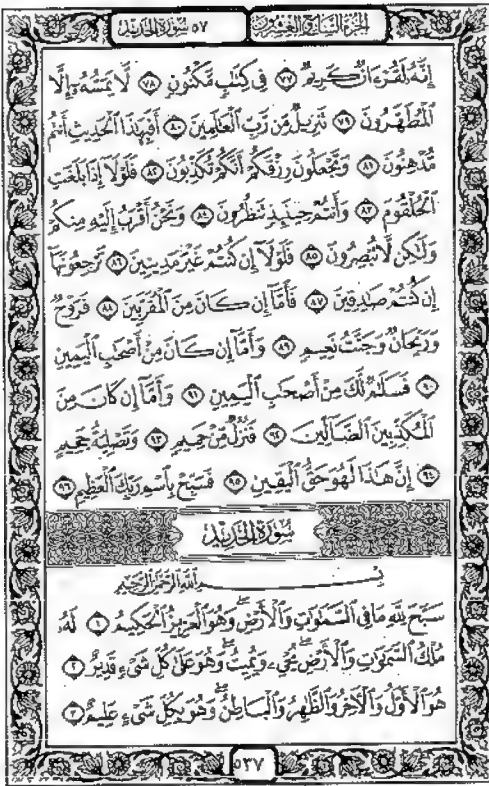 الجزء السابع والعشرون ٥٧ سورة الحديد
إِنَّهُۥ لَقُرْءَانٌ كَرِيمٌ ٧٧ فِى كِتَٰبٍ مَّكْنُونٍ ٧٨ لَّا يَمَسُّهُۥٓ إِلَّا
ٱلْمُطَهَّرُونَ ٧٩ تَنزِيلٌ مِّن رَّبِّ ٱلْعَٰلَمِينَ ٨٠ أَفَبِهَٰذَا ٱلْحَدِيثِ أَنتُم
مُّدْهِنُونَ ٨١ وَتَجْعَلُونَ رِزْقَكُمْ أَنَّكُمْ تُكَذِّبُونَ ٨٢ فَلَوْلَآ إِذَا بَلَغَتِ
ٱلْحُلْقُومَ ٨٣ وَأَنتُمْ حِينَئِذٍ تَنظُرُونَ ٨٤ وَنَحْنُ أَقْرَبُ إِلَيْهِ مِنكُمْ
وَلَٰكِن لَّا تُبْصِرُونَ ٨٥ فَلَوْلَآ إِن كُنتُمْ غَيْرَ مَدِينِينَ ٨٦ تَرْجِعُونَهَآ
إِن كُنتُمْ صَٰدِقِينَ ٨٧ فَأَمَّآ إِن كَانَ مِنَ ٱلْمُقَرَّبِينَ ٨٨ فَرَوْحٌ
وَرَيْحَانٌ وَجَنَّتُ نَعِيمٍ ٨٩ وَأَمَّآ إِن كَانَ مِنْ أَصْحَٰبِ ٱلْيَمِينِ
٩٠ فَسَلَٰمٌ لَّكَ مِنْ أَصْحَٰبِ ٱلْيَمِينِ ٩١ وَأَمَّآ إِن كَانَ مِنَ
ٱلْمُكَذِّبِينَ ٱلضَّآلِّينَ ٩٢ فَنُزُلٌ مِّنْ حَمِيمٍ ٩٣ وَتَصْلِيَةُ جَحِيمٍ
٩٤ إِنَّ هَٰذَا لَهُوَ حَقُّ ٱلْيَقِينِ ٩٥ فَسَبِّحْ بِٱسْمِ رَبِّكَ ٱلْعَظِيمِ ٩٦
سورة الحديد
بِسْمِ ٱللَّهِ ٱلرَّحْمَٰنِ ٱلرَّحِيمِ
سَبَّحَ لِلَّهِ مَا فِى ٱلسَّمَٰوَٰتِ وَٱلْأَرْضِ وَهُوَ ٱلْعَزِيزُ ٱلْحَكِيمُ ١ لَهُۥ
مُلْكُ ٱلسَّمَٰوَٰتِ وَٱلْأَرْضِ يُحْىِۦ وَيُمِيتُ وَهُوَ عَلَىٰ كُلِّ شَىْءٍ قَدِيرٌ ٢
هُوَ ٱلْأَوَّلُ وَٱلْءَاخِرُ وَٱلظَّٰهِرُ وَٱلْبَاطِنُ وَهُوَ بِكُلِّ شَىْءٍ عَلِيمٌ ٣
٥٣٧